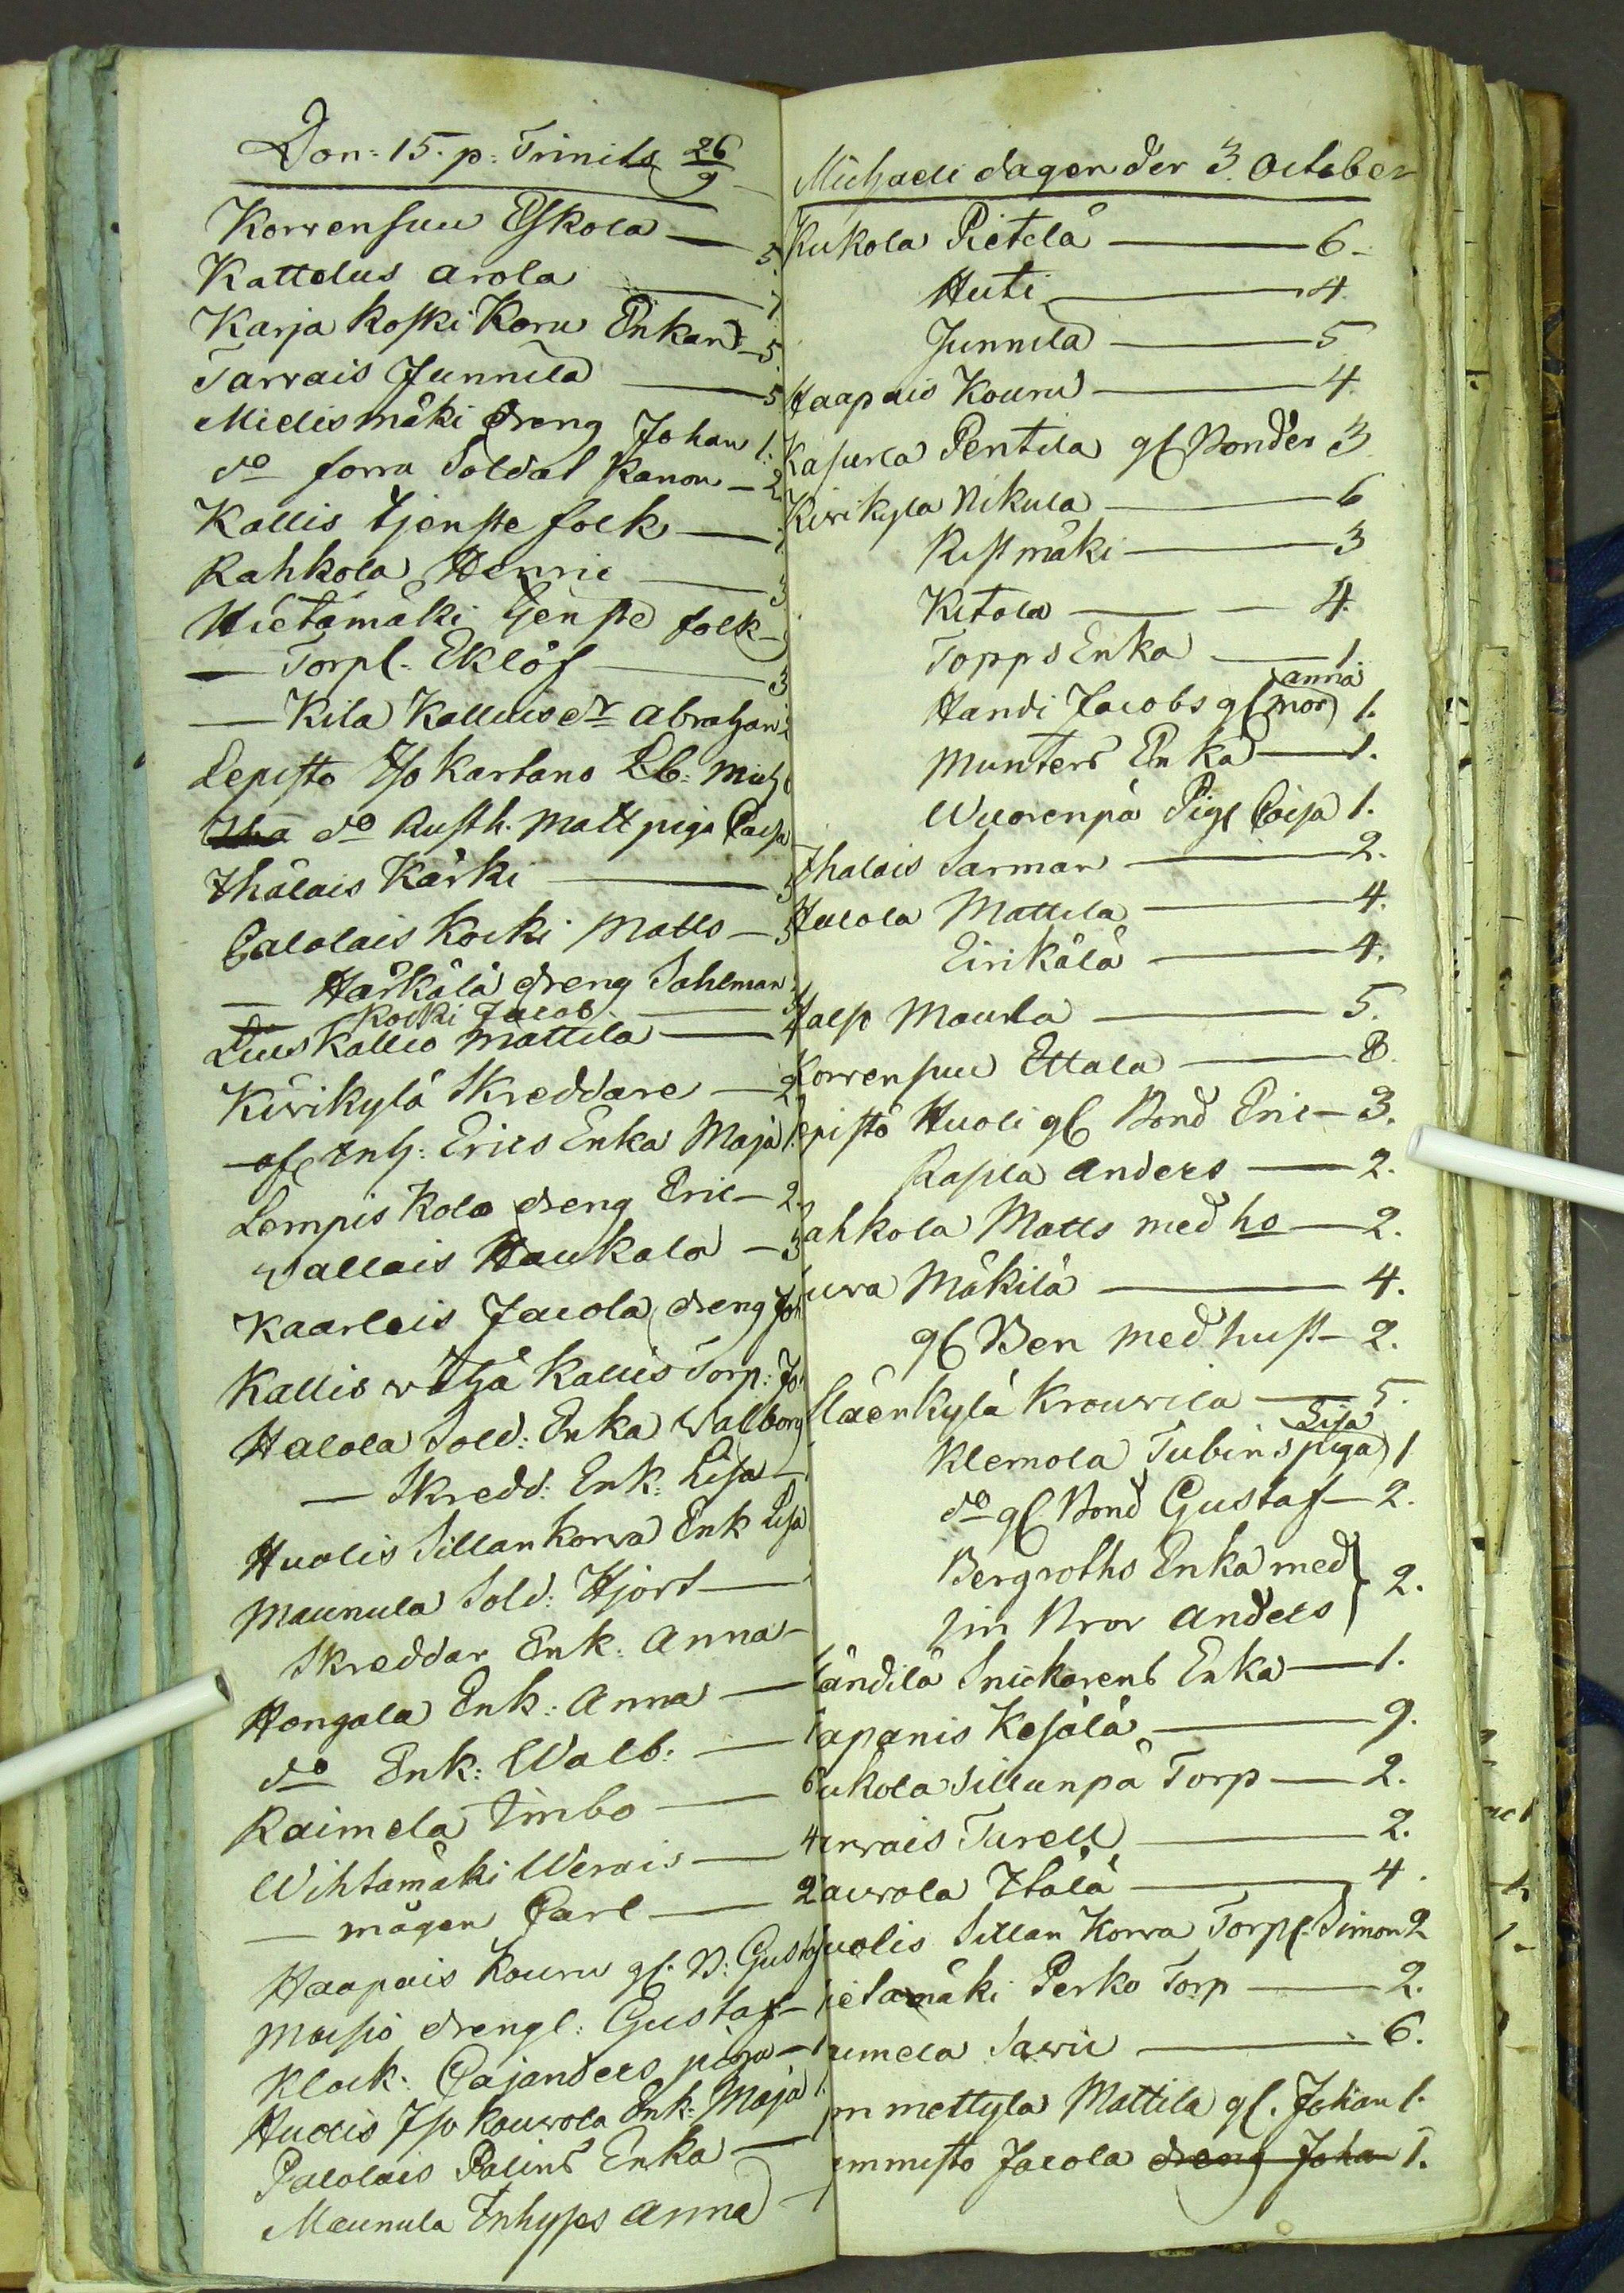 Dom: 15. p: Trinits 26/9
Korvensuu Eskola — 5.
Kattelus Arola — 7
Karja koski Koru Enkan — 5
Tarvais Junnila — 5
Mielismäki dreng Johan 1.
do forra Soldat Kanon — 2
Kallis tjenste folk —
Rahkola Henric — 3
Hietämäki tjenste folk —
— Torpl. Eklöf — 3
— Kila Kallenis dr Abraham
Lepisto Iso Kartano Lb: Mich
do Rusth. Matt piga Caisa
Ihälais Kärki — 3
Palolais Kocki Matts — 3
— Härkälä dreng Sahlman
— Kocki Jacob —
Lius Kallio Mattila — 4
Kivikylä Skreddare — 2
— afl Inh: Erics Enka Maja 1.
Lempis Kola dreng Eric — 2.
Vallais Haukala — 3
Kaarlais Jacola dreng Joh
Kallis vähä Kallis Torp: Jo
Halola Sold: Enka Walborg
— Skredd: Enk: Lisa —
Huolis Sillankorva Enk Lisa
Maunula Sold: Hjort —
Skreddar Enk: Anna —
Hongala Enk: Anna —
do Enk: Walb: —
Raimela Timbo — 6
Wihtamäki Werais — 4
— mågen Carl — 2
Haapais Kouru gl. B: Gustaf
Maisio drengl: Gustaf —
Klock: Cajanders piga — 1
Huolis Iso Kouvola Enk: Maja 1.
Palolais Palins Enka —
Maunula Inhyses Anna —
Michaeli dagen der 3. October
Kukola Pietilä — 6.
Huti — 4.
Junnila — 5
Haapais Kouru — 4.
Kasurla Pentila gl Bonden 3
Kivikyla Nikula — 6
Ristmäki — 3
Kitola — 4.
Topps Enka — 1.
Handi Jacobs gl mor Anna 1.
Munters Enka — 1.
Wuorenpä Pig Caisa 1.
Ihalais Sarman — 2.
Halola Mattila — 4.
Eirikälä — 4.
Halso Maunla — 5.
Korvensuu Ettala — 8.
episto Huoli gl Bond Eric — 3.
Rapila Anders — 2.
ahkola Matts med ho — 2.
uva Mäkilä — 4.
gl Ben med hust — 2.
Iläenkylä Krouvila — 5.
Klemola Tubins piga Lisa 1
do gl Bond Gustaf — 2.
Bergroths Enka med
sin Bror Anders } 2.
ändilä Snickarens Enka — 1.
apanis Kesälä — 9.
ukola Sillanpä Torp — 2.
arvais Turell — 2.
auvola Itälä — 4.
uolis Sillan Korva Torpl. Simon 2
ietamäki Perko Torp — 2.
aimela Savii — 6.
mmettyla Mattila gl. Johan 1.
emmisto Jacola dreng Johan 1.